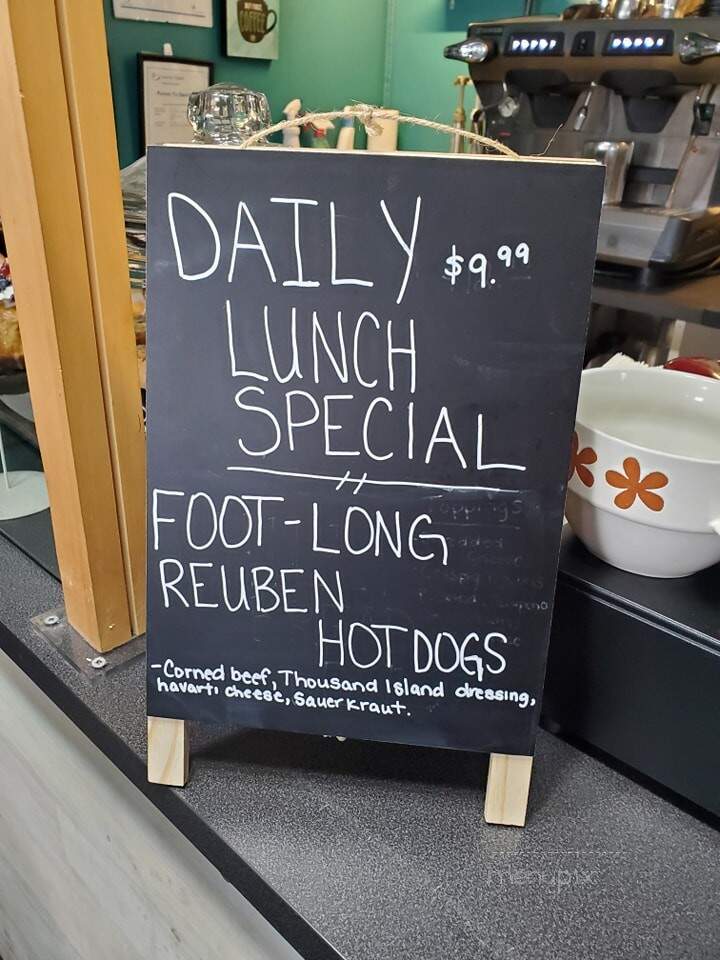 COFFEE
DAILY $9.99
LUNCH
SPECIAL
FOOT-LONG
REUBEN
HOT DOGS
-Corned beef, Thousand Island dressing,
havarti cheese, Sauerkraut.
menupix